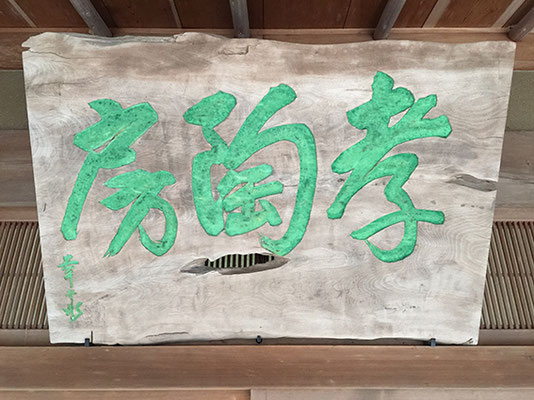 孝陶房